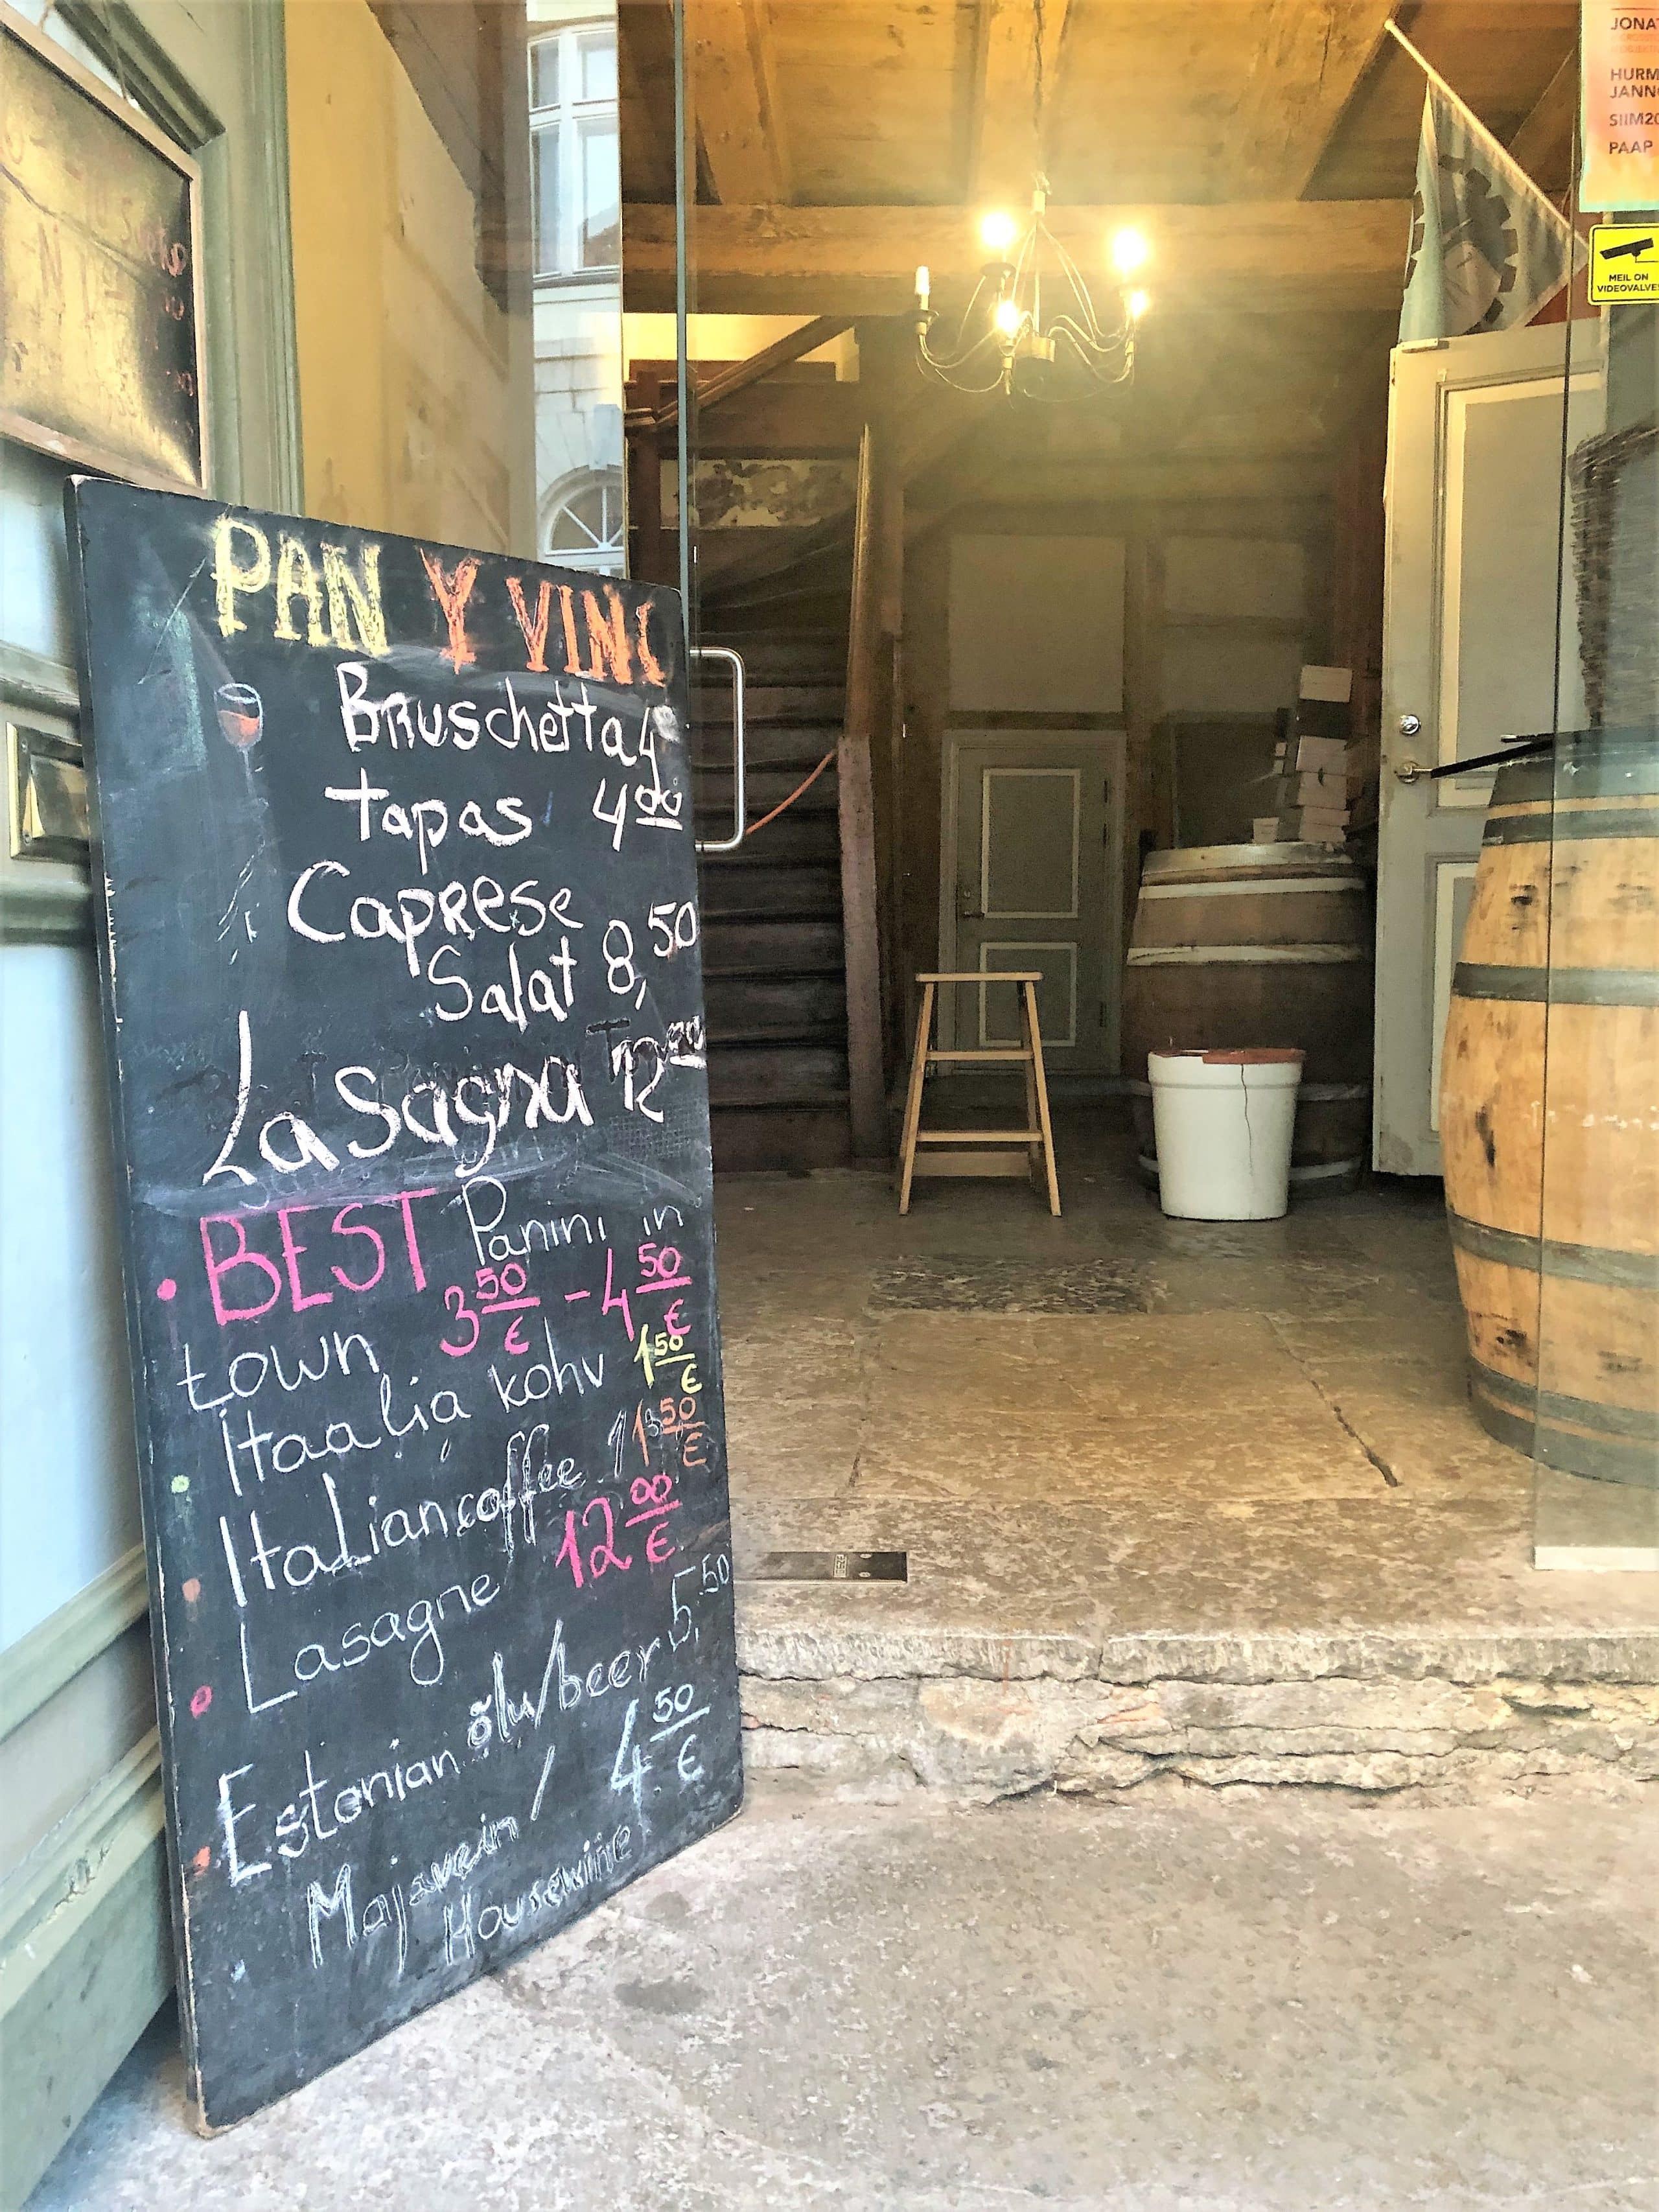 PAN Y VINO
Bruschetta 4
Tapas 4 00
Caprese
Salat 8,50
Lasagna 12 00
• BEST Panini in
town 3 50 € - 4 50 €
Itaalia kohv 1 50 €
Italian coffee 1 50 €
Lasagne 12 00 €
Estonian õlu/beer 5,50
Majavein / 4 50 €
Housewine
JONAT
HURM
JANNO
SIIM20
PAAP
MEIL ON
VIDEOVALVE